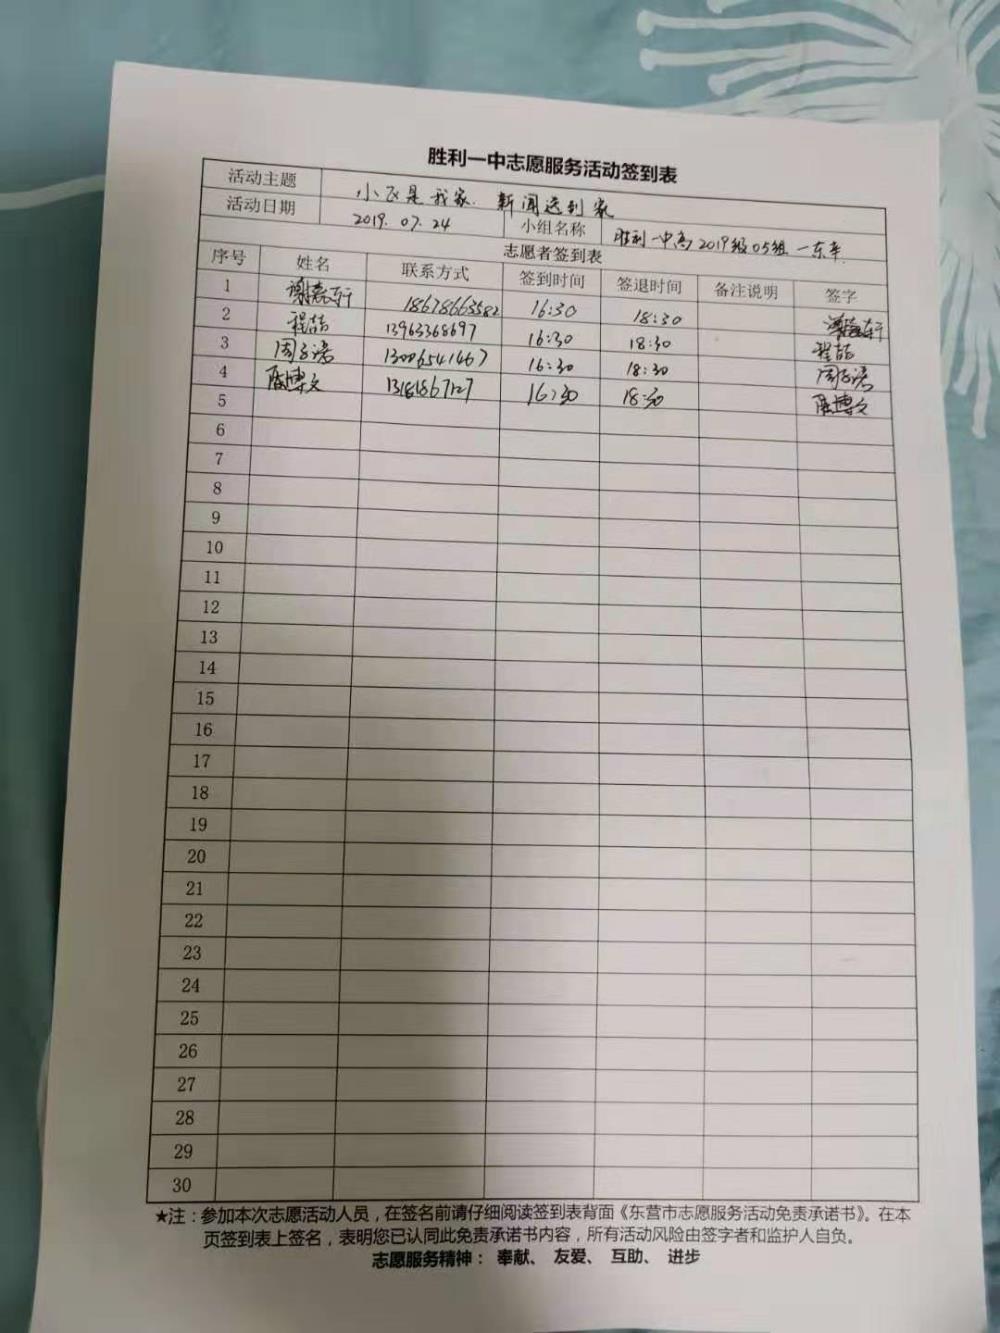 胜利一中志愿服务活动签到表
活动主题 小飞是我家.新闻送到家
活动日期 2019.07.24 小组名称 胜利一中高2019级05组-东辛
志愿者签到表
序号 姓名 联系方式 签到时间 签退时间 备注说明 签字
1 谢嘉轩 18678665582 16:30 18:30
2 程喆 13963368697 16:30 18:30 程喆
3 周子涛 13006541467 16:30 18:30 周子涛
4 博文 13181867127 16:30 18:30 博文
5
6
7
8
9
10
11
12
13
14
15
16
17
18
19
20
21
22
23
24
25
26
27
28
29
30
★注:参加本次志愿活动人员,在签名前请仔细阅读签到表背面《东营市志愿服务活动免责承诺书》。在本
页签到表上签名,表明您已认同此免责承诺书内容,所有活动风险由签字者和监护人自负。
志愿服务精神: 奉献、 友爱、 互助、 进步